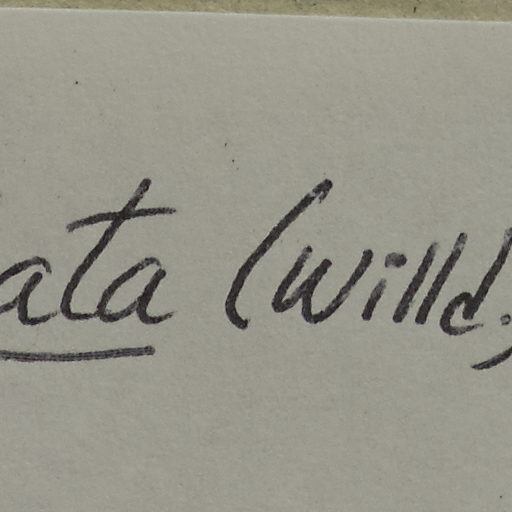 ata (Willd.)